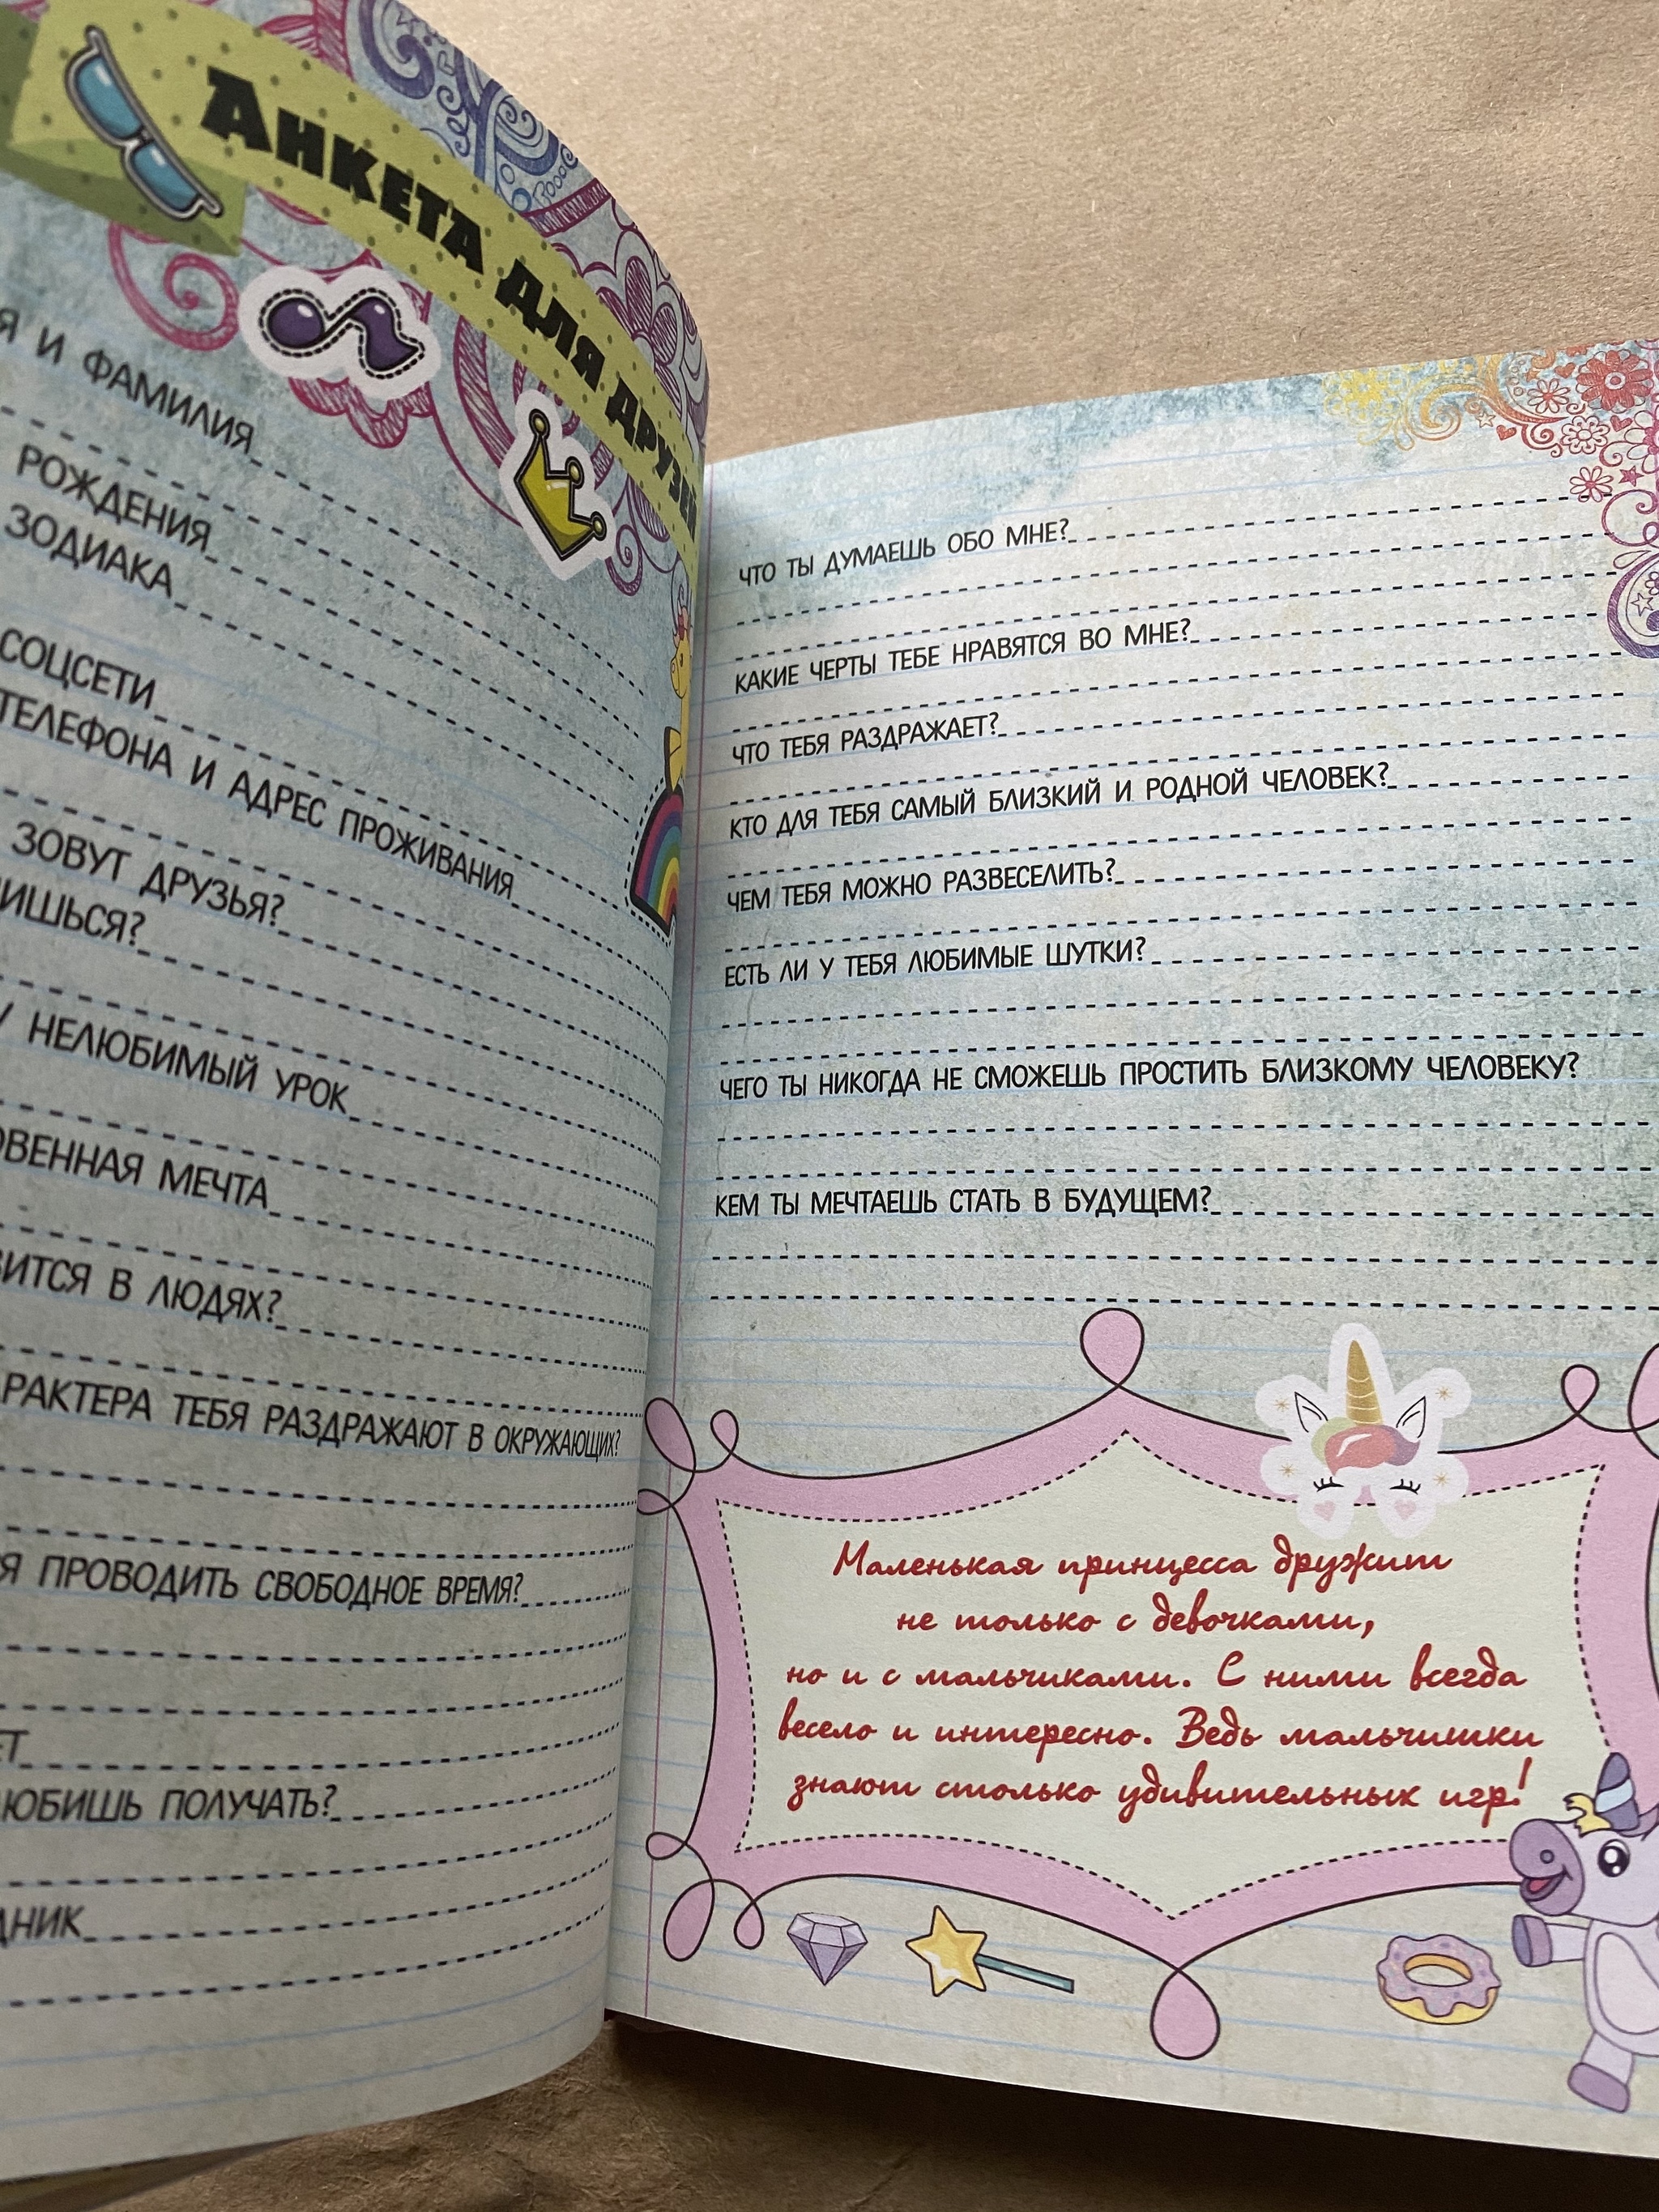 Анкета для друзей
И ФАМИЛИЯ
РОЖДЕНИЯ
ЗОДИАКА
СОЦСЕТИ
ТЕЛЕФОНА И АДРЕС ПРОЖИВАНИЯ
ЗОВУТ ДРУЗЬЯ?
НЕЛЮБИМЫЙ УРОК
МЕЧТА
В ЛЮДЯХ?
ТЕБЯ РАЗДРАЖАЮТ В ОКРУЖАЮЩИХ?
ПРОВОДИТЬ СВОБОДНОЕ ВРЕМЯ?
ПОЛУЧАТЬ?
ЧТО ТЫ ДУМАЕШЬ ОБО МНЕ?
КАКИЕ ЧЕРТЫ ТЕБЕ НРАВЯТСЯ ВО МНЕ?
ЧТО ТЕБЯ РАЗДРАЖАЕТ?
КТО ДЛЯ ТЕБЯ САМЫЙ БЛИЗКИЙ И РОДНОЙ ЧЕЛОВЕК?
ЧЕМ ТЕБЯ МОЖНО РАЗВЕСЕЛИТЬ?
ЕСТЬ ЛИ У ТЕБЯ ЛЮБИМЫЕ ШУТКИ?
ЧЕГО ТЫ НИКОГДА НЕ СМОЖЕШЬ ПРОСТИТЬ БЛИЗКОМУ ЧЕЛОВЕКУ?
КЕМ ТЫ МЕЧТАЕШЬ СТАТЬ В БУДУЩЕМ?
Маленькая принцесса дружит
не только с девочками,
но и с мальчиками. С ними всегда
весело и интересно. Ведь мальчишки
знают столько удивительных игр!